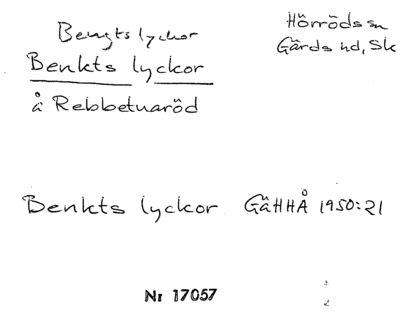 Bengts lyckor
Hörröds sn
Gärds hd, Sk
Benkts lyckor
å Rebbetuaröd
Benkts lyckor GäHHÅ 1950:21
Nr 17057